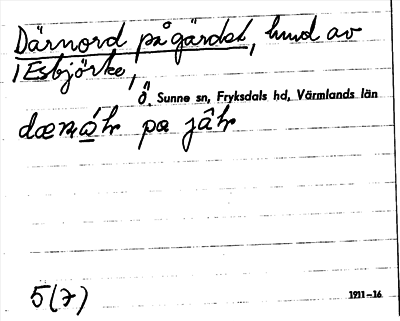 Därnord på gärdet, hund av
1 Esbjörke,
Ö. Sunne sn, Fryksdals hd, Värmlands län
pa jâhr
5(7)
1911-16